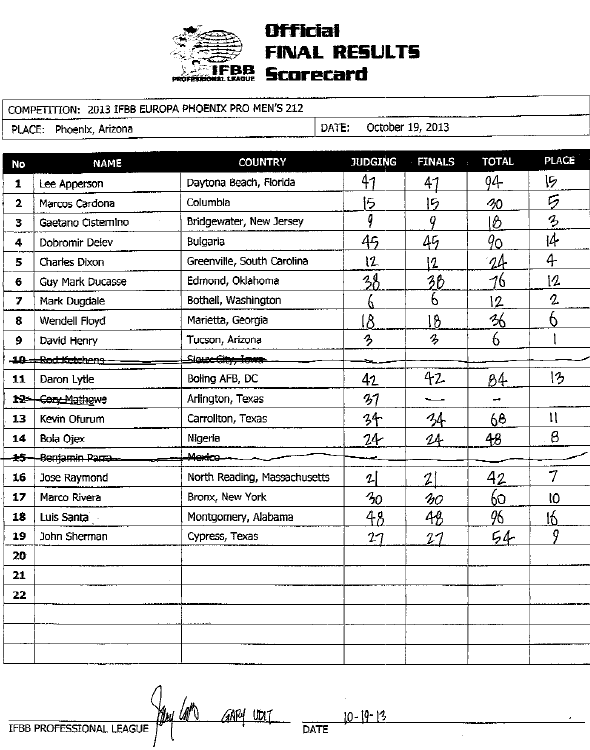 Official
FINAL RESULTS
IFBB Scorecard
PROFESSIONAL LEAGUE
COMPETITION: 2013 IFBB EUROPA PHOENIX PRO MEN'S 212
PLACE: Phoenix, Arizona DATE: October 19, 2013
No NAME COUNTRY JUDGING FINALS TOTAL PLACE
1 Lee Apperson Daytona Beach, Florida 47 47 94 15
2 Marcos Cardona Columbia 15 15 30 5
3 Gaetano Cisternino Bridgewater, New Jersey 9 9 18 3
4 Dobromir Delev Bulgaria 45 45 90 14
5 Charles Dixon Greenville, South Carolina 12 12 24 4
6 Guy Mark Ducasse Edmond, Oklahoma 38 38 76 12
7 Mark Dugdale Bothell, Washington 6 6 12 2
8 Wendell Floyd Marietta, Georgia 18 18 36 6
9 David Henry Tucson, Arizona 3 3 6 1
10 Rod Ketchens Sioux City, Iowa
11 Daron Lytle Boling AFB, DC 42 42 84 13
12 Cory Mathews Arlington, Texas 37 — –
13 Kevin Ofurum Carrollton, Texas 34 34 68 11
14 Bola Ojex Nigeria 24 24 48 8
15 Benjamin Parra Mexico
16 Jose Raymond North Reading, Massachusetts 21 21 42 7
17 Marco Rivera Bronx, New York 30 30 60 10
18 Luis Santa Montgomery, Alabama 48 48 96 16
19 John Sherman Cypress, Texas 27 27 54 9
20
21
22
GARY UDIT 10-19-13
IFBB PROFESSIONAL LEAGUE DATE